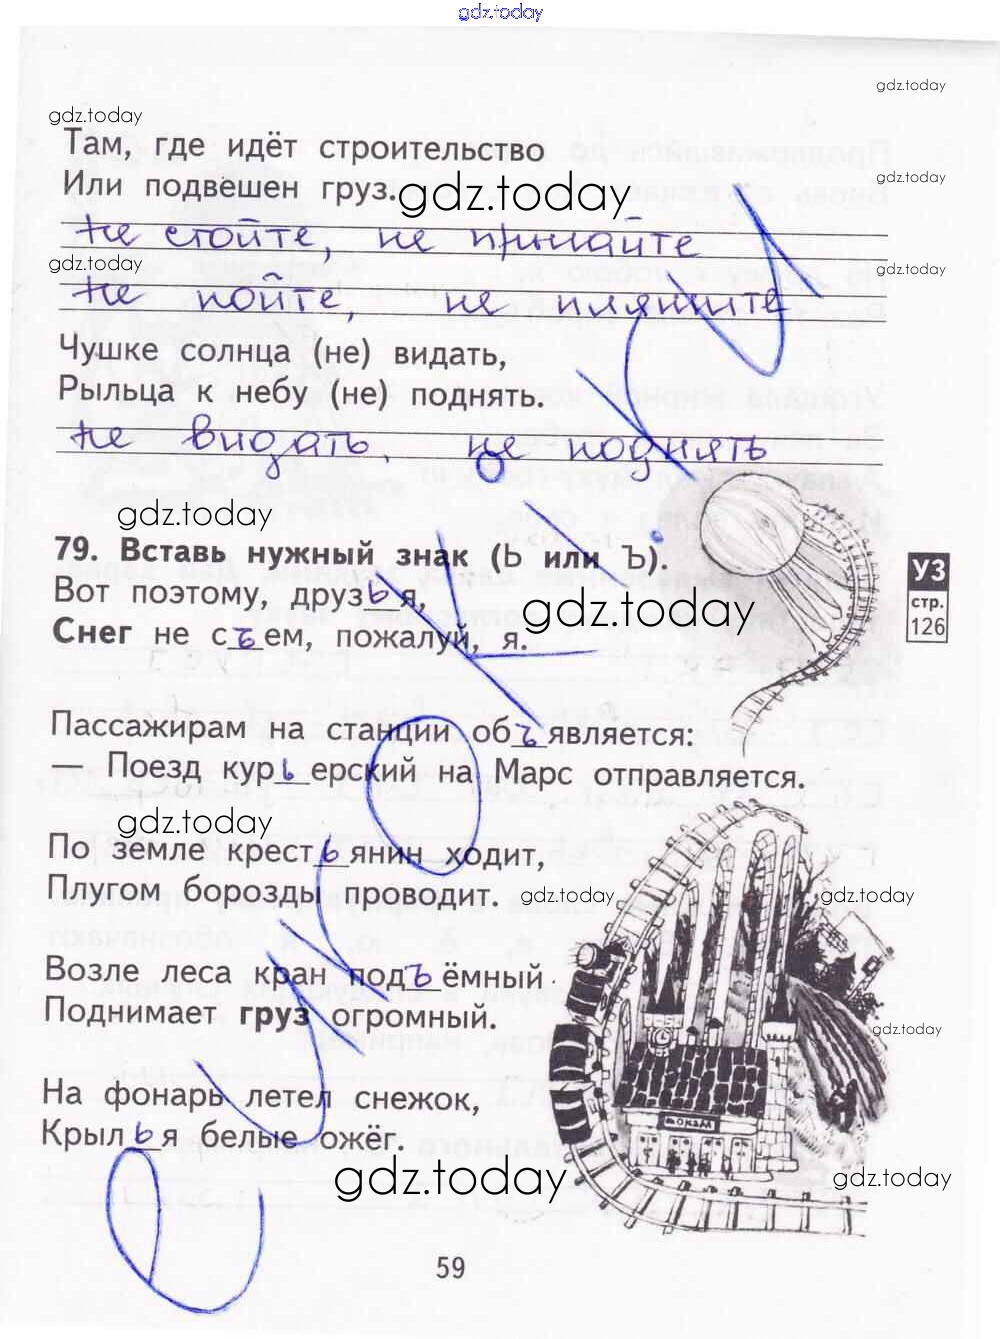 gdz.today
gdz.today
gdz.today
Там, где идёт строительство
Или подвешен груз.
gdz.today
gdz.today
не стойте, не прыгайте
gdz.today
gdz.today
не пойте, не пляшите
Чушке солнца (не) видать,
Рыльца к небу (не) поднять.
не видать, не поднять
gdz.today
79. Вставь нужный знак (Ь или Ъ).
УЗ
стр.
126
Вот поэтому, друзья,
gdz.today
Снег не съем, пожалуй, я.
Пассажирам на станции объявляется:
— Поезд курьерский на Марс отправляется,
gdz.today
По земле крестьянин ходит,
Плугом борозды проводит.
gdz.today
gdz.today
Возле леса кран подъёмный
Поднимает груз огромный.
gdz.today
На фонарь летел снежок,
Крылья белые ожёг.
gdz.today
gdz.today
59